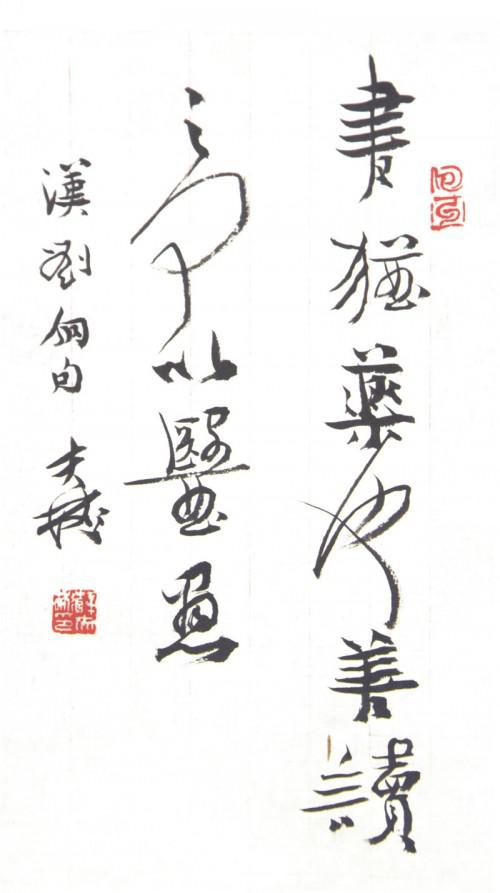 書猶藥也善讀
之可以醫愚
漢劉向句